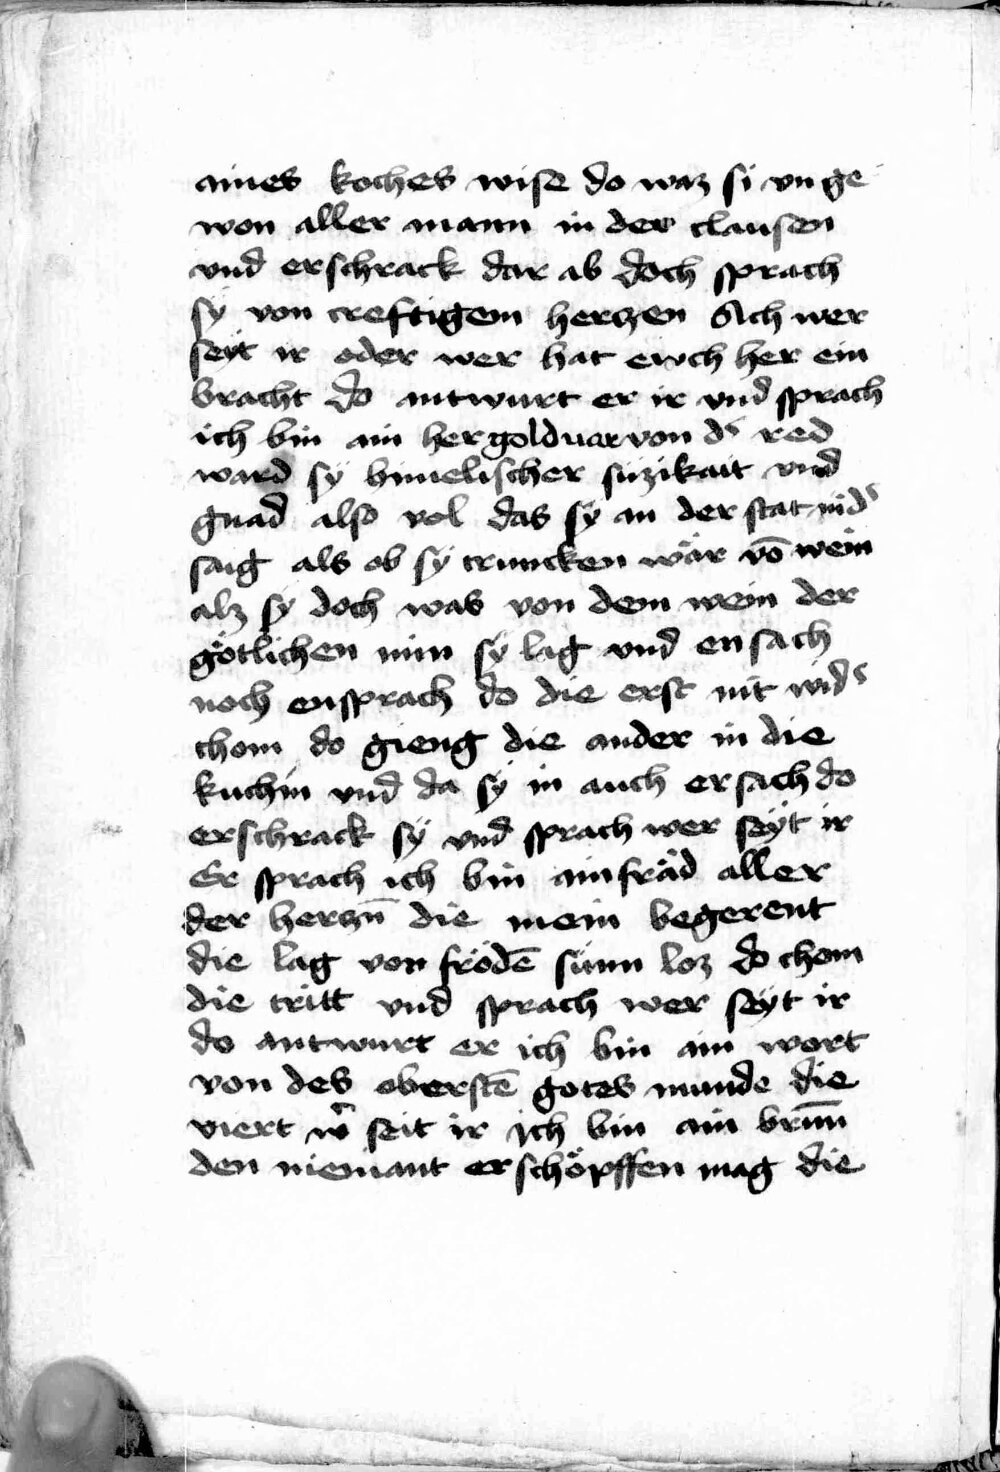 aines koches wise do waz si vn ge
won aller mann in der clausen
vnd erschrack dar ab doch sprach
sÿ von creftigem herczen Ach wer
seÿt ir oder wer hat ewch her ein
bracht do antwurt er ir vnd sprach
ich bin ain her goldvar von d' red
ward sÿ himelischer süzikait vnd
gnad also vol das sÿ an der stat nid'
saig als ob sÿ truncken wär vō wein
alz sÿ doch was von dem wein der
götlichen min sÿ lag vnd en sach
noch ensprach do die erst nit wid'
chom do gieng die ander in die
kuchin vnd da sÿ in auch ersach do
erschrack sÿ vnd sprach wer seÿt ir
Er sprach ich bin ain fräd aller
der herczn̄ die mein begerent
die lag von frödē sünn loz do chom
die tritt vnd sprach wer seÿt ir
do antwurt er ich bin ain wort
von des oberstē gotes munde die
viert w̄ seit ir Ich bin ain brun̄n
den niemant erschöpffen mag die